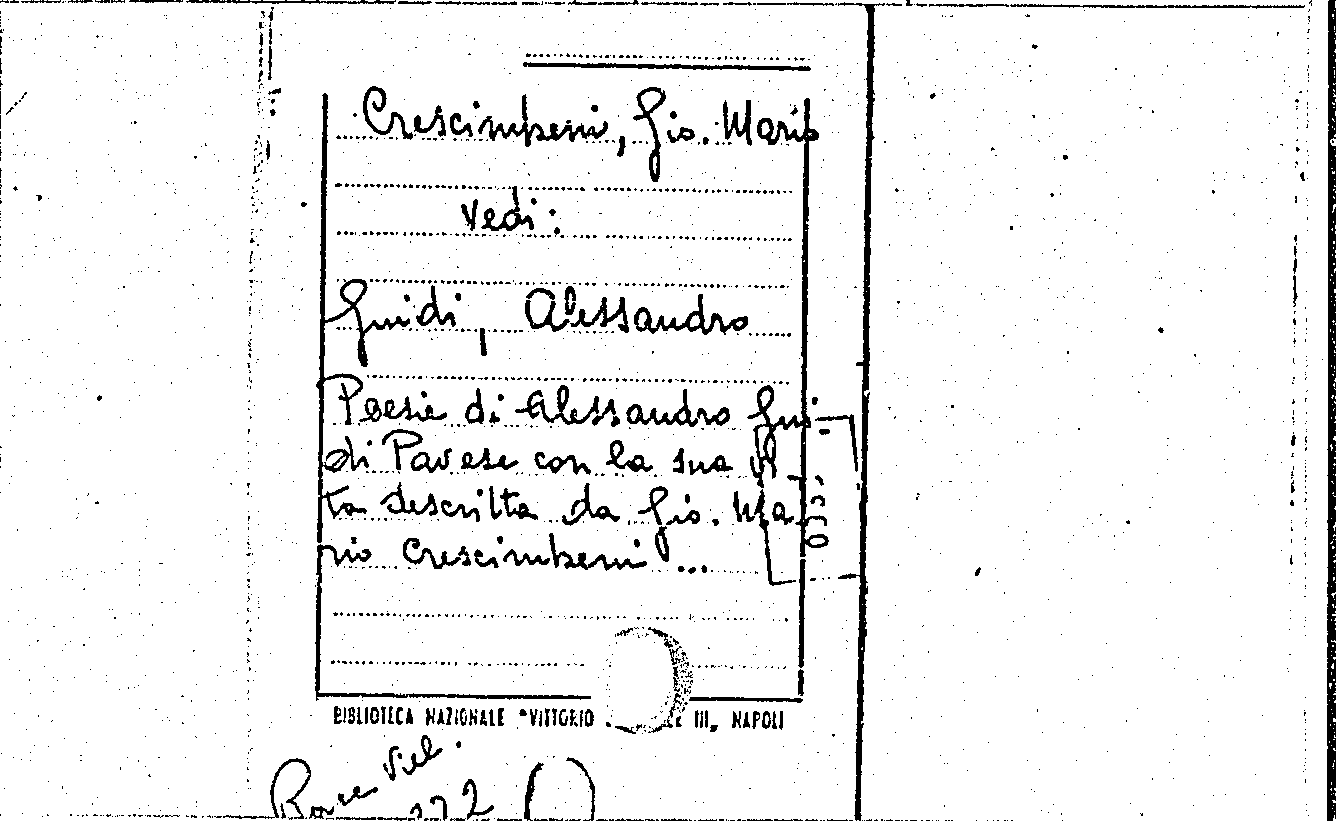 Crescimbeni, Gio. Mario
Vedi:
Guidi, Alessandro
Poesie di Alessandro Gui-
di Pavese con la sua vi-
ta descritta da Gio. Ma-
rio Crescimbeni ...
BIBLIOTECA NAZIONALE "VITTORIO III„ NAPOLI
Race Vill.
( )